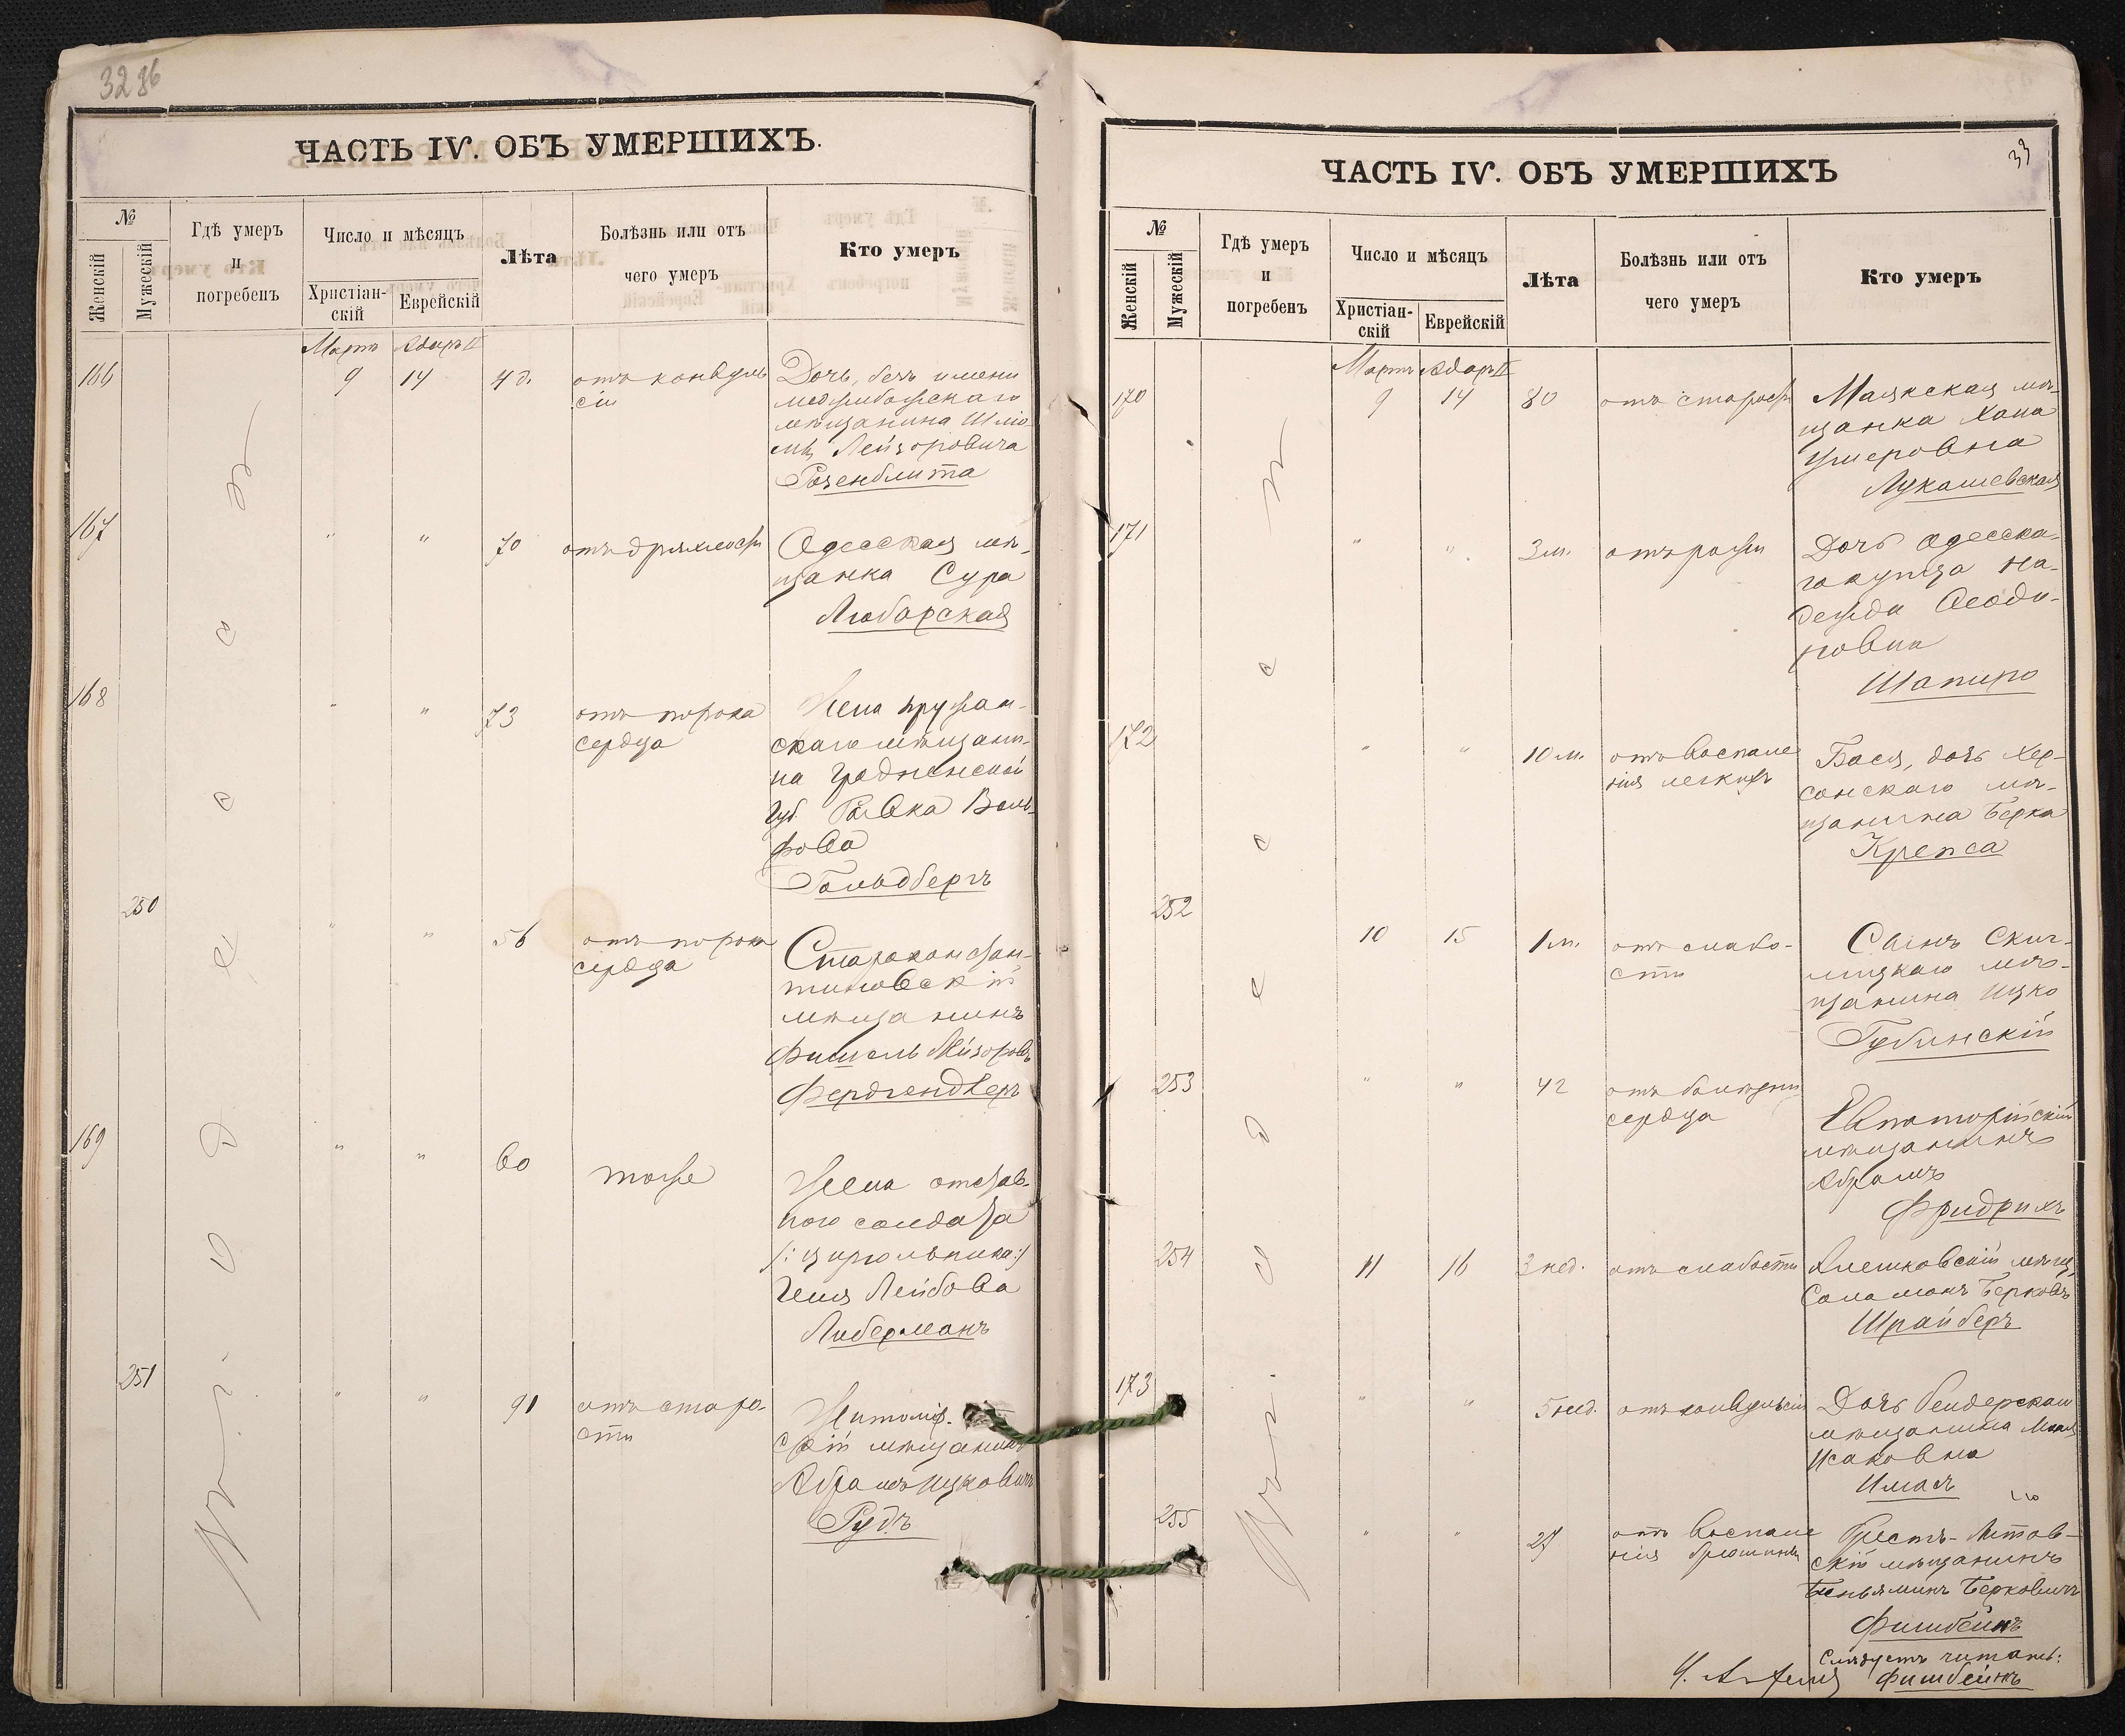 3286
ЧАСТЬ IV. ОБЪ УМЕРШИХЪ.
№
Женскій
Мужескій
Гдѣ умеръ
и
погребенъ
Число и мѣсяцъ
Христіан-
скій
Еврейскій
Лѣта
Болѣзнь или отъ
чего умеръ
Кто умеръ
Въ г. Одессѣ
Мартъ Адаръ II
166
9 14 4 д.
отъ конвуль
сіи
Дочь, безъ имени
меджибожскаго
мѣщанина Шлio
мы Лейзоровича
Розенблита
167
" " 70 отъ дряхлости
Одесская мѣ-
щанка Сура
Любарская
168
" " 73
отъ порока
сердца
Жена пружан-
скаго мѣщани-
на Гродненской
губ. Ривка Воль-
фова
Гольдбергъ
250
" " 56
отъ порока
сердца
Староконстан-
тиновскій
мѣщанинъ
Фишель Лейзоровъ
169
" " 60 тоже
Жена отстав-
ного солдата
/: цирюльника :/
Лейбова
Либерманъ
251
" " 91
отъ старо-
сти
Житомiр-
скій мѣщанинъ
Абрамъ Ицковичъ
Рудъ
33
ЧАСТЬ IV. ОБЪ УМЕРШИХЪ
№
Женскій
Мужескій
Гдѣ умеръ
и
погребенъ
Число и мѣсяцъ
Христіан-
скій
Еврейскій
Лѣта
Болѣзнь или отъ
чего умеръ
Кто умеръ
Въ г. Одессѣ
Мартъ Адаръ II
170
9 14 80 отъ старости
Маякская мѣ-
щанка Хана
Умеровна
Лукашевская
171
" " 3 м. отъ рожи
Дочь Одесска-
го купца На-
дежда
Шапиро
172
" " 10 м.
отъ воспале
нія легкихъ
Бася, дочь Хер-
сонскаго мѣ-
щанина Берка
Крепса
252
10 15 1 м.
отъ слабо-
сти
Сынъ
мѣ-
щанина Ицко
Губинскій
253
" " 42
отъ болѣзни
сердца
Евпаторійскій
мѣщанинъ
Абрамъ
Фридрихъ
254
11 16 3 нед. отъ слабости
Алешковскій мѣщ.
Саломонъ Берковъ
Шрайберъ
173
" " 5 нед. отъ конвульсіи
Дочь бендерскаго
мѣщанина
Исаковна
Имасъ
255
" " 27
отъ воспале
нія брюшины
Брестъ-Литов-
скій мѣщанинъ
Беньяминъ Берковичъ
Фишбейнъ
Слѣдуетъ читать:
Фишбейнъ